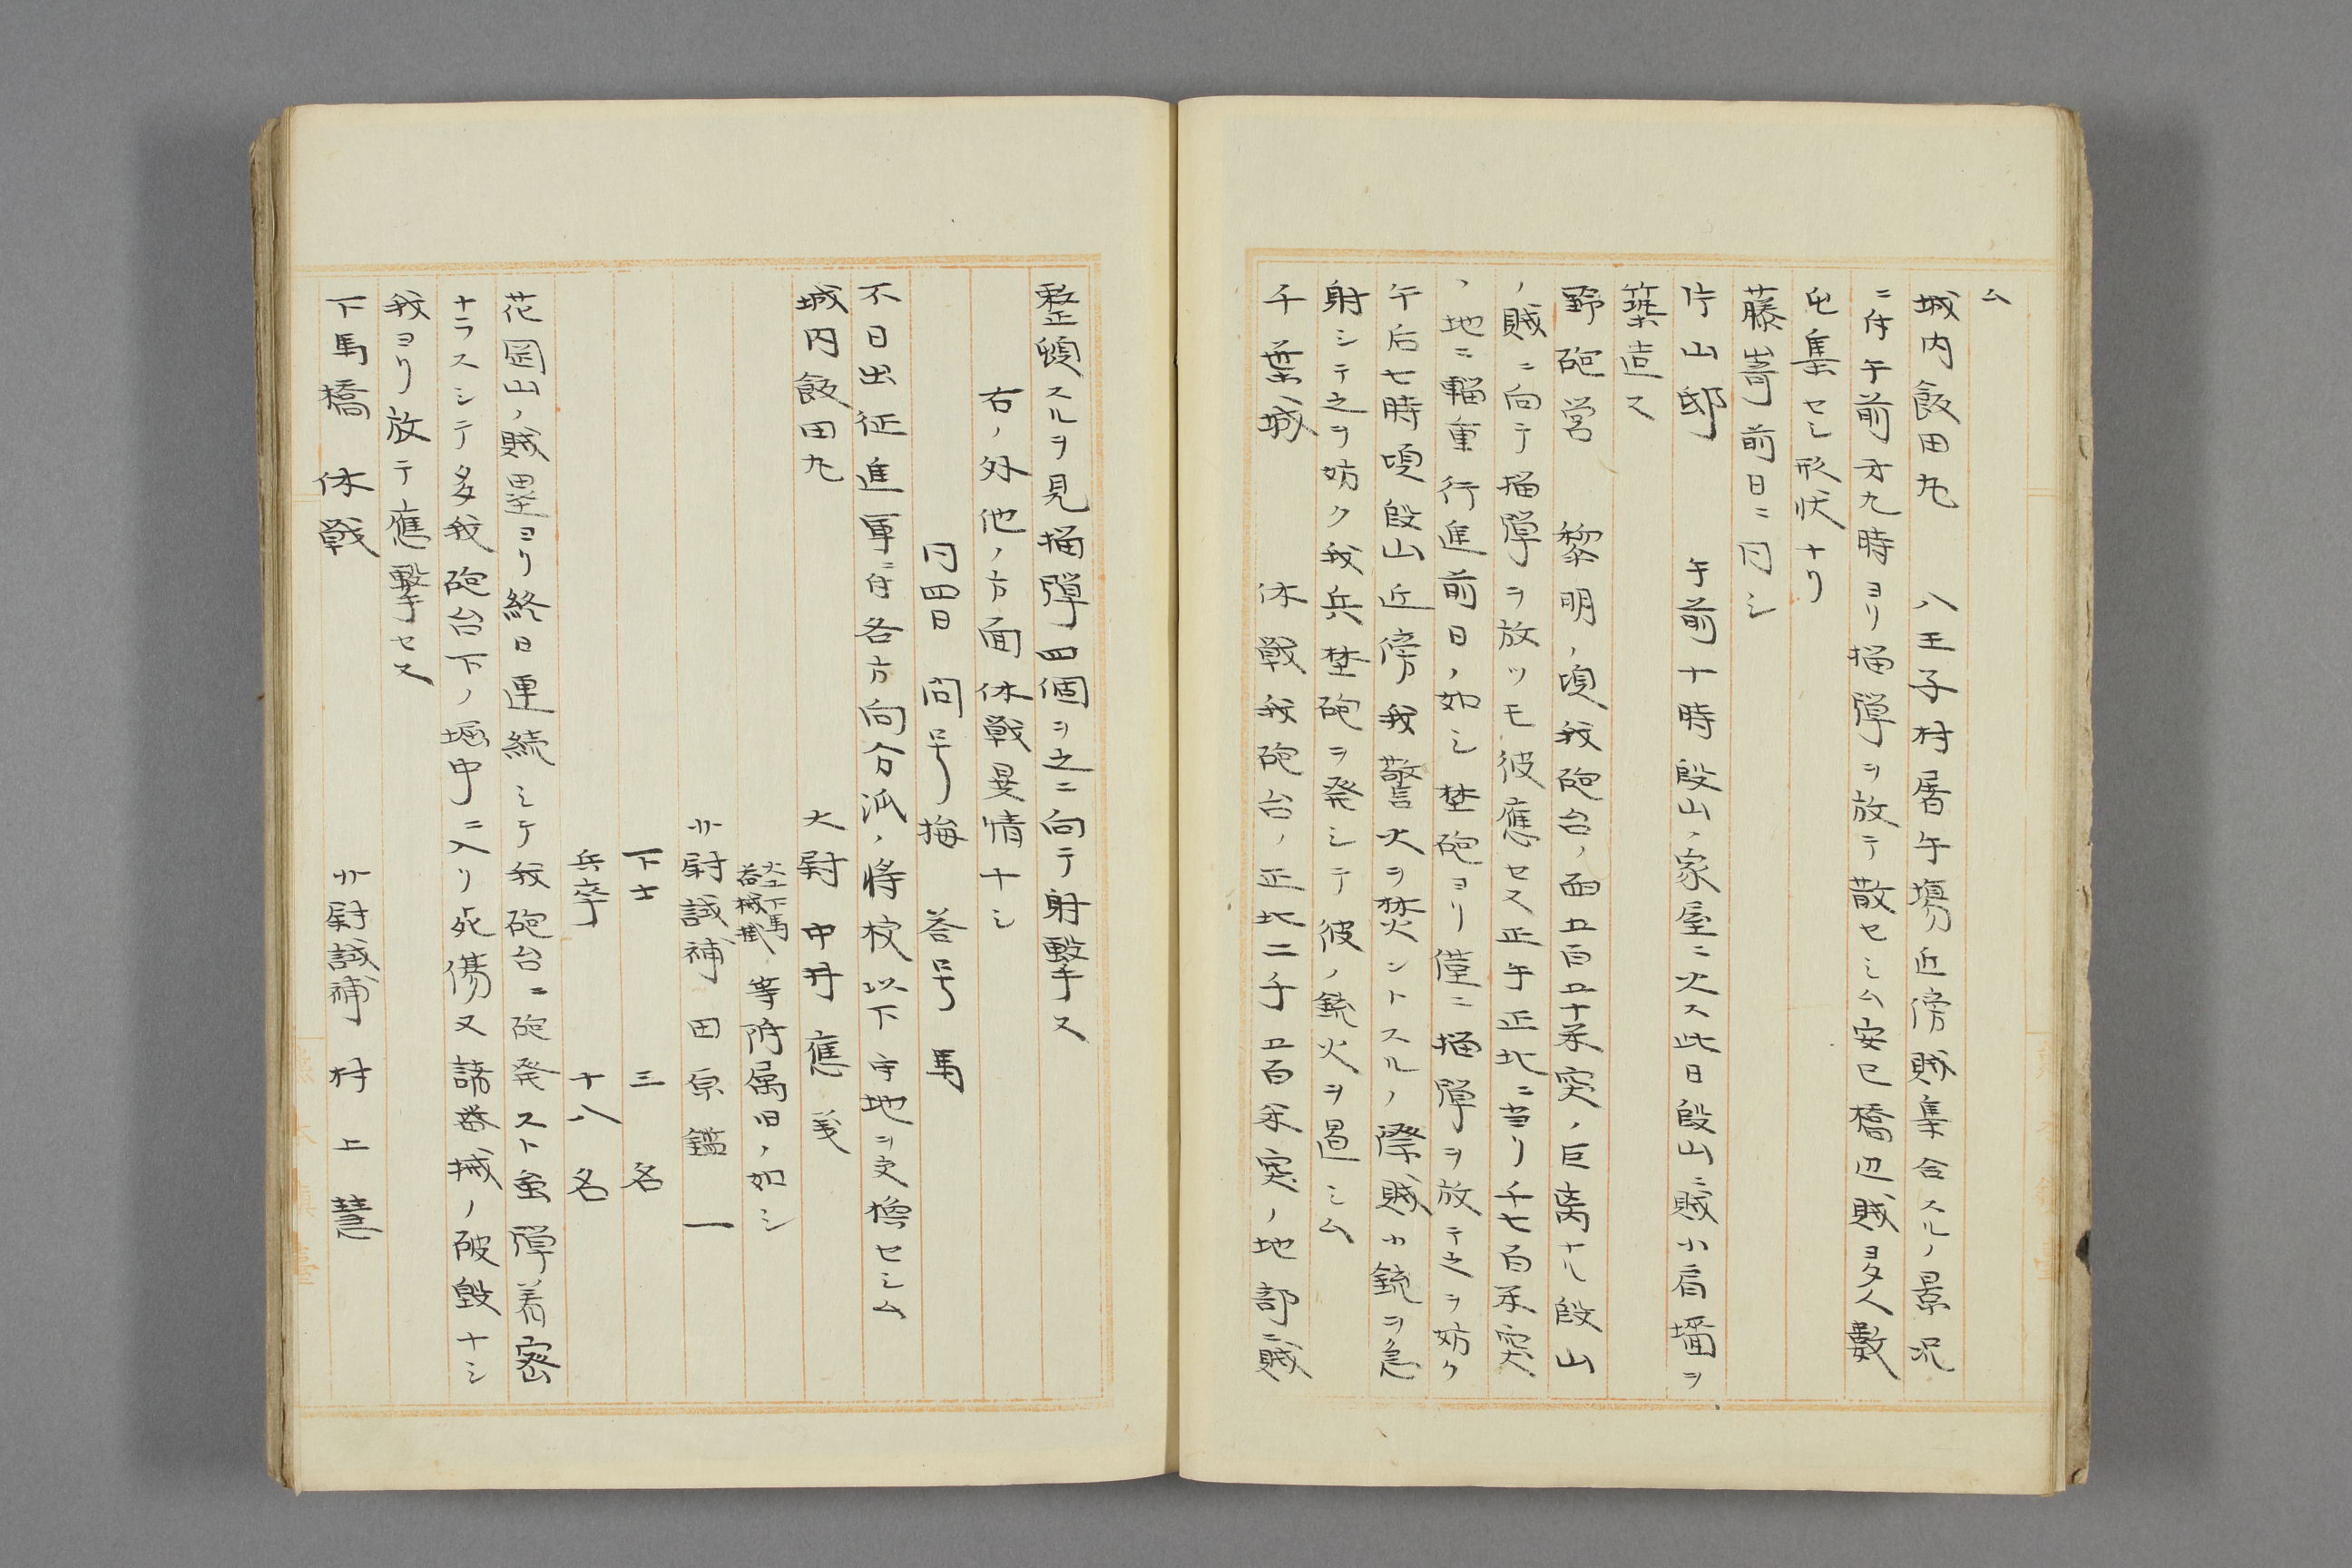 ム
城内飯田丸　八王子村屠牛場近傍賊集合スルノ景况
ニ付午前才九時ヨリ描弾ヲ放テ散セシム安巳橋辺賊ヨタ人數
屯集セシ形状ナリ
藤崎前日ニ同シ
片山邸　午前十時段山ノ家屋ニ火ス此日段山ニ賊小肩墻ヲ
築造ス
野砲営　黎明ノ頃我砲台ノ面五百五十米突ノ巨离ナル段山
ノ賊ニ向テ描弾ヲ放ツモ彼應セス正午正北ニ当リ千七百米突
ノ地ニ輜重行進前日ノ如シ埜砲ヨリ僅ニ描弾ヲ放テ之ヲ妨ク
午后七時頃段山近傍我警火ヲ焚ントスルノ際賊小銃ヲ急
射シテ之ヲ妨ク我兵埜砲ヲ発シテ彼ノ銃火ヲ遏シム
千葉城　休戰我砲台ノ正北二千五百米突ノ地部ニ賊
整頓スルヲ見描弾四個ヲ之ニ向テ射撃ス
右ノ外他ノ方面休戰異情ナシ
同四日　問号　梅　答号　馬
不日出征進軍ニ付各方向分派ノ将校以下守地ヲ交換セシム
城内飯田丸　大尉　中井應義
火工下馬
器械掛　等附属旧ノ如シ
少尉試補　田原鑑一
下士　三名
兵卒　十八名
花岡山ノ賊塁ヨリ終日連続シテ我砲台ニ砲発スト虽弾着密
ナラスシテ多我砲台下ノ堀中ニ入リ死傷又諸器械ノ破毀ナシ
我ヨリ放テ應撃セス
下馬橋　休戰　少尉試補　村上慧